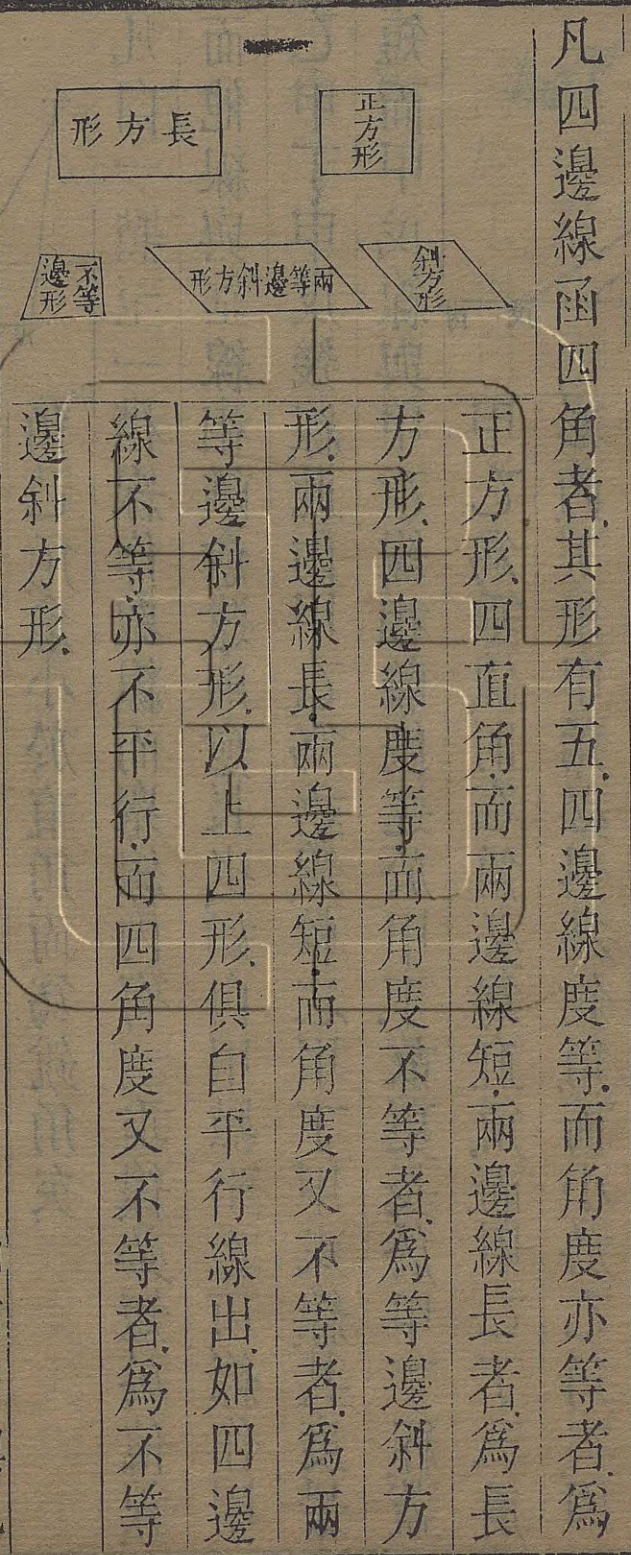 凡四邊線函四角者其形有五四邊線度等而角度亦等者爲
正方形四直角而兩邊線短兩邊線長者爲長
方形四邊線度等而角度不等者爲等邊斜方
形兩邊線長兩邊線短而角度又不等者爲兩
等邊斜方形以上四形俱自平行線出如四邊
線不等亦不平行而四角度又不等者爲不等
邊斜方形
正方形
長方形
斜方形
兩等邊斜方形
不等
邊形